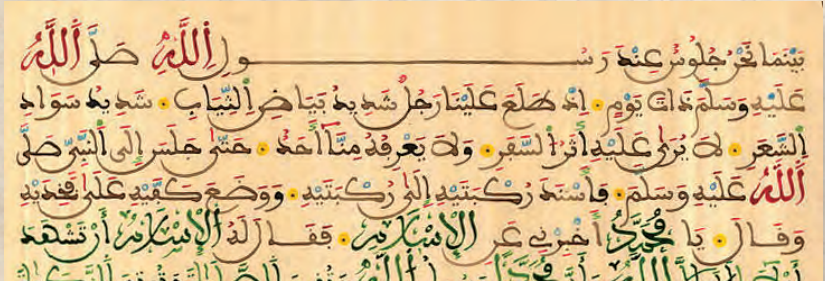 بَيْنَمَا نَحْنُ جُلُوسٌ عِنْدَ رَسُولِ اللَّهِ صَلَّى اللَّهُ
عَلَيْهِ وَسَلَّمَ ذَاتَ يَوْمٍ • إِذْ طَلَعَ عَلَيْنَا رَجُلٌ شَدِيدُ بَيَاضِ الثِّيَابِ • شَدِيدُ سَوَادِ
الشَّعَرِ • لَا يُرَىٰ عَلَيْهِ أَثَرُ السَّفَرِ • وَلَا يَعْرِفُهُ مِنَّا أَحَدٌ • حَتَّىٰ جَلَسَ إِلَى النَّبِيِّ صَلَّى
اللَّهُ عَلَيْهِ وَسَلَّمَ • فَأَسْنَدَ رُكْبَتَيْهِ إِلَىٰ رُكْبَتَيْهِ • وَوَضَعَ كَفَّيْهِ عَلَىٰ فَخِذَيْهِ
وَقَالَ • يَا مُحَمَّدُ أَخْبِرْنِي عَنِ الْإِسْلَامِ • فَقَالَ لَهُ الْإِسْلَامُ أَنْ تَشْهَدَ